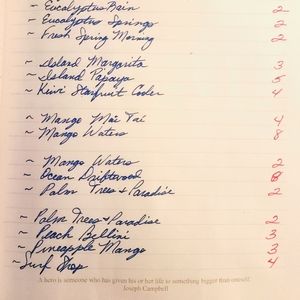 ~ Eucalyptus Rain 2
~ Eucalyptus Springs 2
~ Fresh Spring Morning 2
~ Island Margarita 3
~ Island Papaya 5
~ Kiwi Starfruit Cooler 4
~ Mango Mai Tai 4
~ Mango Waters 8
~ Mango Waters 2
~ Ocean Driftwood 8
~ Palm Trees & Paradise 2
~ Palm Trees & Paradise 2
~ Peach Bellini 3
~ Pineapple Mango 3
~ Surf Shop 4
A hero is someone who has given his or her life to something bigger than oneself.
Joseph Campbell